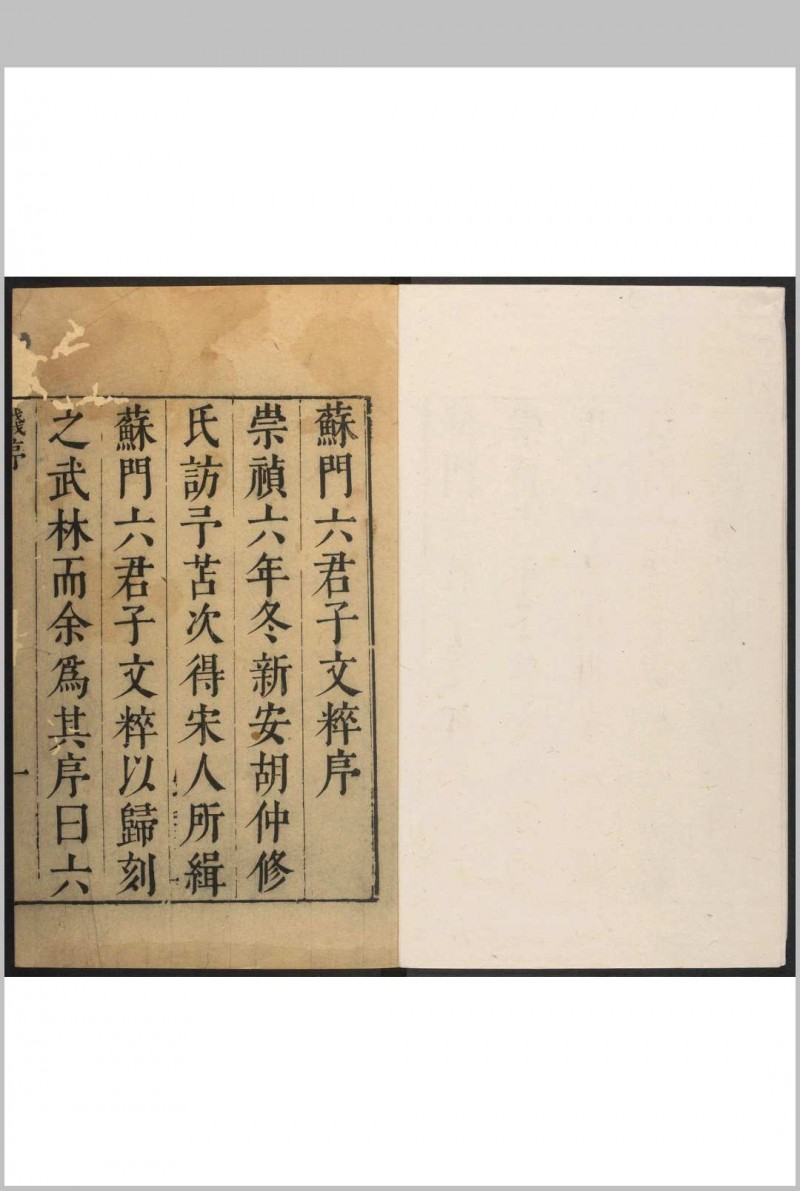 蘇門六君子文粹序
崇禎六年冬新安胡仲修
氏訪予苫次得宋人所緝
蘇門六君子文粹以歸刻
之武林而余爲其序曰六
錢序
一